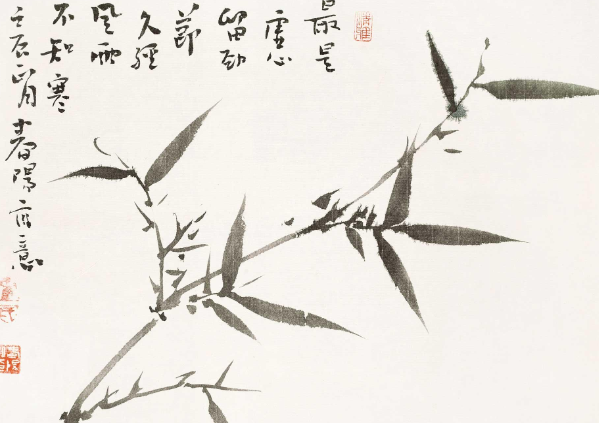 最是
虚心
留劲
節
久經
風雨
不知寒
壬辰正月
春陽寫意